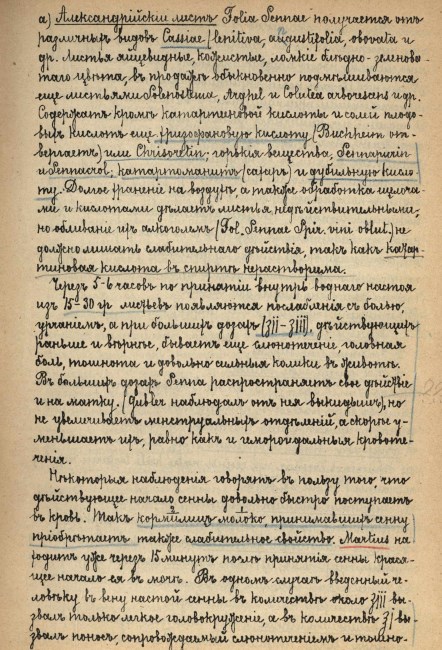 а) Александрійскій листъ Folia Sennae получается отъ
различныхъ видовъ Cassiae (lenitiva, angustifolia, obovata и
др. Листья яицевидные, кожистые, ломкіе блѣдно-зелено-
таго цвѣта, въ продажѣ обыкновенно подмѣшиваются
еще листьями Solenostema, Arghel и Colutea arborescens и др.
Содержатъ кромѣ катартиновой кислоты и солей плодо-
выхъ кислотъ еще хризофановую кислоту (Buchheim от-
вергаетъ) или Chrisoretin, горькія вещества, Sennapicrin
и Sennacrol, катартоманнитъ (сахаръ) и дубильную кисло-
ту. Долгое храненіе на воздухѣ, а также обработка щелоча-
ми и кислотами дѣлаетъ листья недѣйствительными,
но обливаніе ихъ алкоголемъ (Fol. Sennae Spir. vini ablut.) не
должно лишать слабительнаго дѣйствія, такъ какъ катар-
тиновая кислота въ спиртѣ нерастворима.
Черезъ 5-6 часовъ по принятіи внутрь воднаго настоя
изъ 15-30 гр. листьевъ появляются послабленія съ болью,
урчаніемъ, а при большихъ дозахъ (ʒii–ʒiii), дѣйствующихъ
раньше и вѣрнѣе, бываетъ еще слюнотеченіе, головная
боль, тошнота и довольно сильныя колики въ животѣ.
Въ большихъ дозахъ Senna распространяетъ свое дѣйствіе
и на матку. (Gubler наблюдалъ отъ нея выкидышъ), но
не увеличиваетъ менструальныхъ отдѣленій, а скорѣе у-
меньшаетъ ихъ, равно какъ и геморроидальныя кровоте-
ченія.
Нѣкоторыя наблюденія говорятъ въ пользу того, что
дѣйствующее начало сенны довольно быстро поступаетъ
въ кровь. Такъ кормилицъ молоко принимавшихъ сенну
пріобрѣтаетъ также слабительное свойство. Martius на-
ходитъ уже черезъ 15 минутъ послѣ принятія сенны крася-
щее начало ея въ мочѣ. Въ одномъ случаѣ введенный че-
ловѣку въ вену настой сенны въ количествѣ около ʒiii вы-
звалъ только легкое головокруженіе, а въ количествѣ ʒj вы-
звалъ поносъ, сопровождаемый слюнотеченіемъ и тошно-